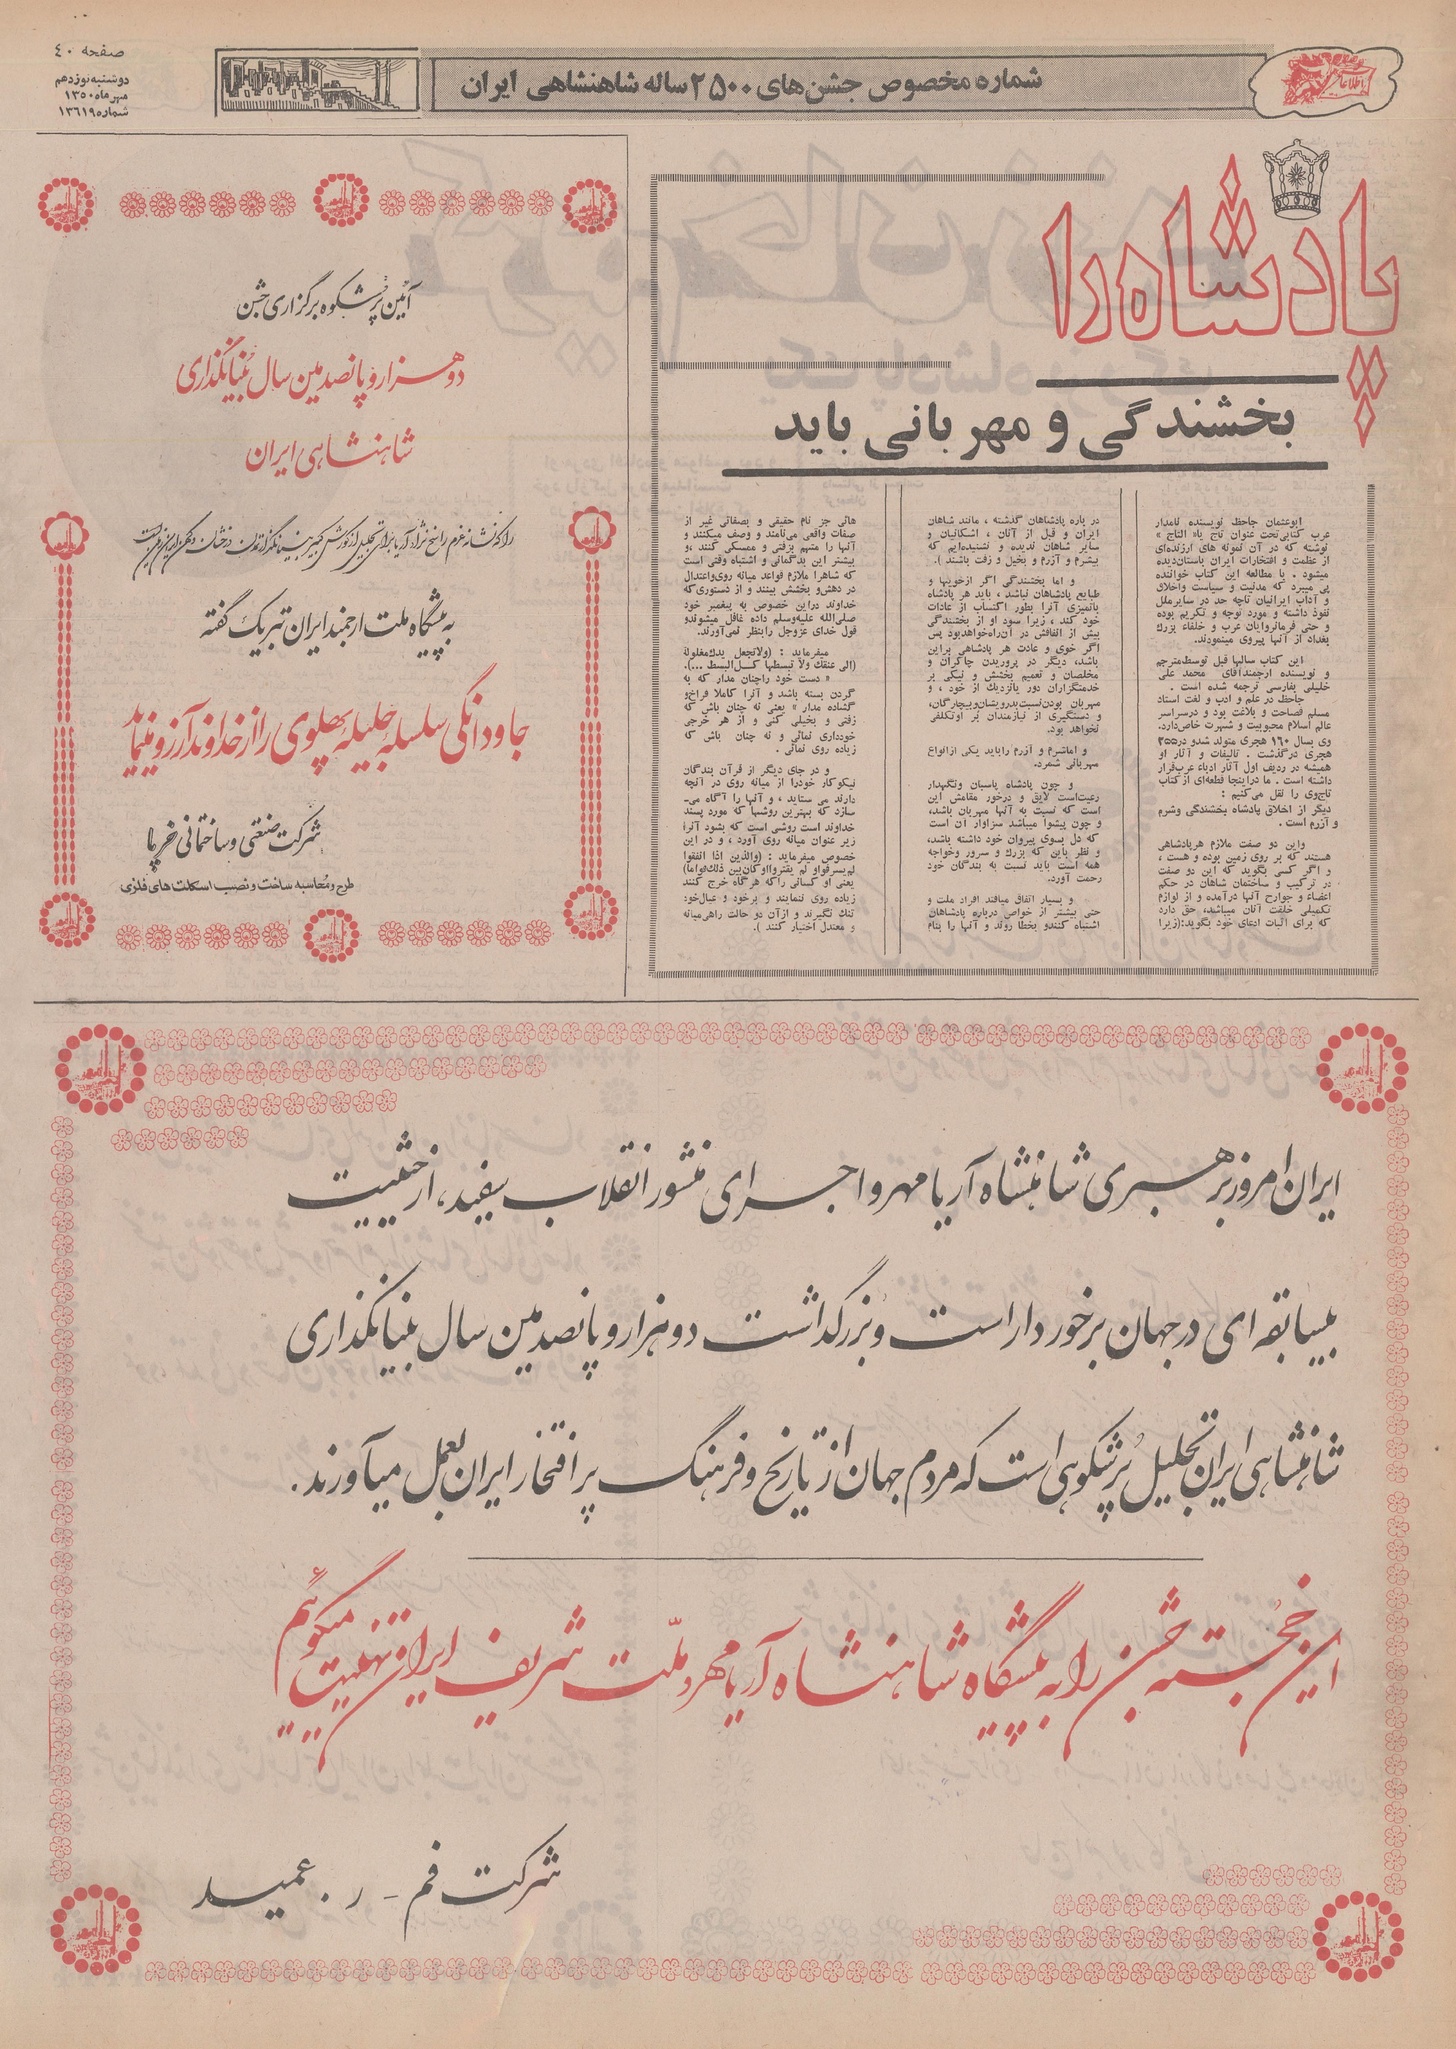 صفحه ٤٠
دوشنبه نوزدهم
مهر ماه ١٣٥٠
شماره ١٣٦١٩
شماره مخصوص جشن‌های ٢٥٠٠ ساله شاهنشاهی ایران
اطلاعات
پادشاه را
بخشندگی و مهربانی باید
ابوعثمان جاحظ نویسنده نامدار
عرب کتابی‌تحت عنوان تاج یا« التاج »
نوشته که در آن نمونه های ارزنده‌ای
از عظمت و افتخارات ایران باستان‌دیده
میشود . با مطالعه این کتاب خواننده
پی میبرد که مدنیت و سیاست واخلاق
و آداب ایرانیان تاچه حد در سایرملل
نفوذ داشته و مورد توجه و تکریم بوده
و حتی فرمانروایان عرب و خلفاء بزرك
بغداد از آنها پیروی مینمودند.
این کتاب سالها قبل توسط‌مترجم
و نویسنده ارجمندآقای محمد علی
خلیلی بفارسی ترجمه شده است .
جاحظ در علم و ادب و لغت استاد
مسلم فصاحت و بلاغت بود و درسراسر
عالم اسلام محبوبیت و شهرت خاص‌دارد.
وی بسال ١٦٠ هجری متولد شدو در٢٥٥
هجری درگذشت . تالیفات و آثار او
همیشه در ردیف اول آثار ادباء عرب‌قرار
داشته است . ما دراینجا قطعه‌ای ازکتاب
تاج‌وی را نقل می‌کنیم :
دیگر از اخلاق پادشاه بخشندگی وشرم
و آزرم است .
واین دو صفت ملازم هرپادشاهی
هستند که بر روی زمین بوده و هست ،
و اگر کسی بگوید که این دو صفت
در ترکیب و ساختمان شاهان در حکم
اعضاء و جوارح آنها درآمده و از لوازم
تکمیلی خلقت آنان میباشد، حق دارد
که برای اثبات ادعای خود بگوید:(زیرا
در باره پادشاهان گذشته ، مانند شاهان
ایران و قبل از آنان ، اشکانیان و
سایر شاهان ندیده و نشنیده‌ایم که
بیشرم و آزرم و بخیل و زفت باشند ).
و اما بخشندگی اگر ازخویها و
طبایع پادشاهان نباشد ، باید هر پادشاه
باتمیزی آنرا بطور اکتساب از عادات
خود کند ، زیرا سود او از بخشندگی
بیش از انفاقش در آن‌راه‌خواهدبود پس
اگر خوی و عادت هر پادشاهی براین
باشد، دیگر در پروریدن چاکران و
مخلصان و تعمیم بخشش و نیکی بر
خدمتگزاران دور یانزدیك از خود ، و
مهربان بودن‌نسبت‌بدرویشان‌وبیچارگان،
و دستگیری از نیازمندان بر اوتکلفی
نخواهد بود.
و اماشرم و آزرم راباید یکی ازانواع
مهربانی شمرد.
و چون پادشاه پاسبان ونگهدار
رعیت‌است لایق و درخور مقامش این
است که نسبت به آنها مهربان باشد،
و چون پیشوا میباشد سزاوار آن است
که دل بسوی پیروان خود داشته باشد،
و نظر باین که بزرك و سرور وخواجه
همه است باید نسبت به بندگان خود
رحمت آورد.
و بسیار اتفاق میافتد افراد ملت و
حتی بیشتر از خواص درباره پادشاهان
اشتباه کنندو بخطا روند و آنها را بنام
هائی جز نام حقیقی و بصفاتی غیر از
صفات واقعی می‌نامند و وصف میکنند و
آنها را متهم بزفتی و ممسکی کنند ،و
بیشتر این بدگمانی و اشتباه وقتی است
که شاهرا ملازم قواعد میانه روی‌واعتدال
در دهش‌و بخشش ببینند و از دستوری‌که
خداوند دراین خصوص به پیغمبر خود
صلی‌الله علیه‌وسلم داده غافل میشوندو
قول خدای عزوجل رابنظر نمی‌آورند.
میفرماید : (ولاتجعل یدك‌مغلولة
(الی عنقك ولا تبسطها کـل‌البسط ...).
« دست خود راچنان مدار که به
گردن بسته باشد و آنرا کاملا فراخ‌و
گشاده مدار » یعنی نه چنان باش که
زفتی و بخیلی کنی و از هر خرجی
خودداری نمائی و نه چنان باش که
زیاده روی نمائی .
و در جای دیگر از قرآن بندگان
نیکوکار خودرا از میانه روی در آنچه
دارند می ستاید ، و آنها را آگاه می‌ـ
سازد که بهترین روشها که مورد پسند
خداوند است روشی است که بشود آنرا
زیر عنوان میانه روی آورد ، و در این
خصوص میفرماید : (والذین اذا انفقوا
لم‌یسرفواو لم یقترواوکان‌بین ذلك‌قواما)
یعنی او کسانی راکه هرگاه خرج کنند
زیاده روی ننمایند و برخود و عیال‌خود
تنك نگیرند و ازآن دو حالت راهی‌میانه
و معتدل اختیار کنند ).
آئین پرشکوه برگزاری جشن
دوهزار و پانصدمین سال بنیانگذاری
شاهنشاهی ایران
به پیشگاه ملت ارجمند ایران تبریک گفته
جاودانگی سلسله جلیله پهلوی را از خداوند آرزو مینماید
شرکت صنعتی و ساختمانی خرپا
طرح و محاسبه ساخت و نصب اسکلت های فلزی
ایران امروز برهبری شاهنشاه آریامهر و اجرای منشور انقلاب سفید، از حیثیت
بیسابقه ای در جهان برخوردار است و بزرگداشت دوهزار و پانصدمین سال بنیانگذاری
شاهنشاهی ایران تجلیل پرشکوهی است که مردم جهان از تاریخ و فرهنگ پر افتخار ایران بعمل میآورند.
این خجسته جشن را به پیشگاه شاهنشاه آریامهر و ملّت شریف ایران تهنیت میگوئیم
شرکت فم - ر . عمید